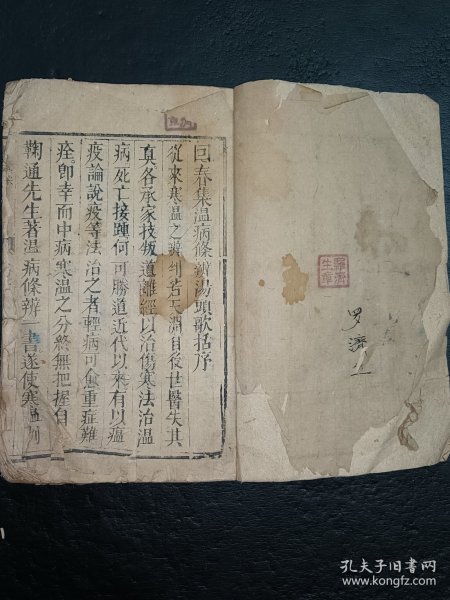 回春集溫病條辨湯頭歌括序
從來寒温之辨判若天淵自後世醫失其
真各承家技叛道離經以治傷寒法治温
病死亡接踵何可勝道近代以來有以瘟
疫論說疫等法治之者輕病可愈重症難
痊即幸而中病寒温之分終無把握自
鞠通先生著温病條辨一書遂使寒温判
羅濟
生章
罗濟
孔夫子旧书网
www.kongfz.com